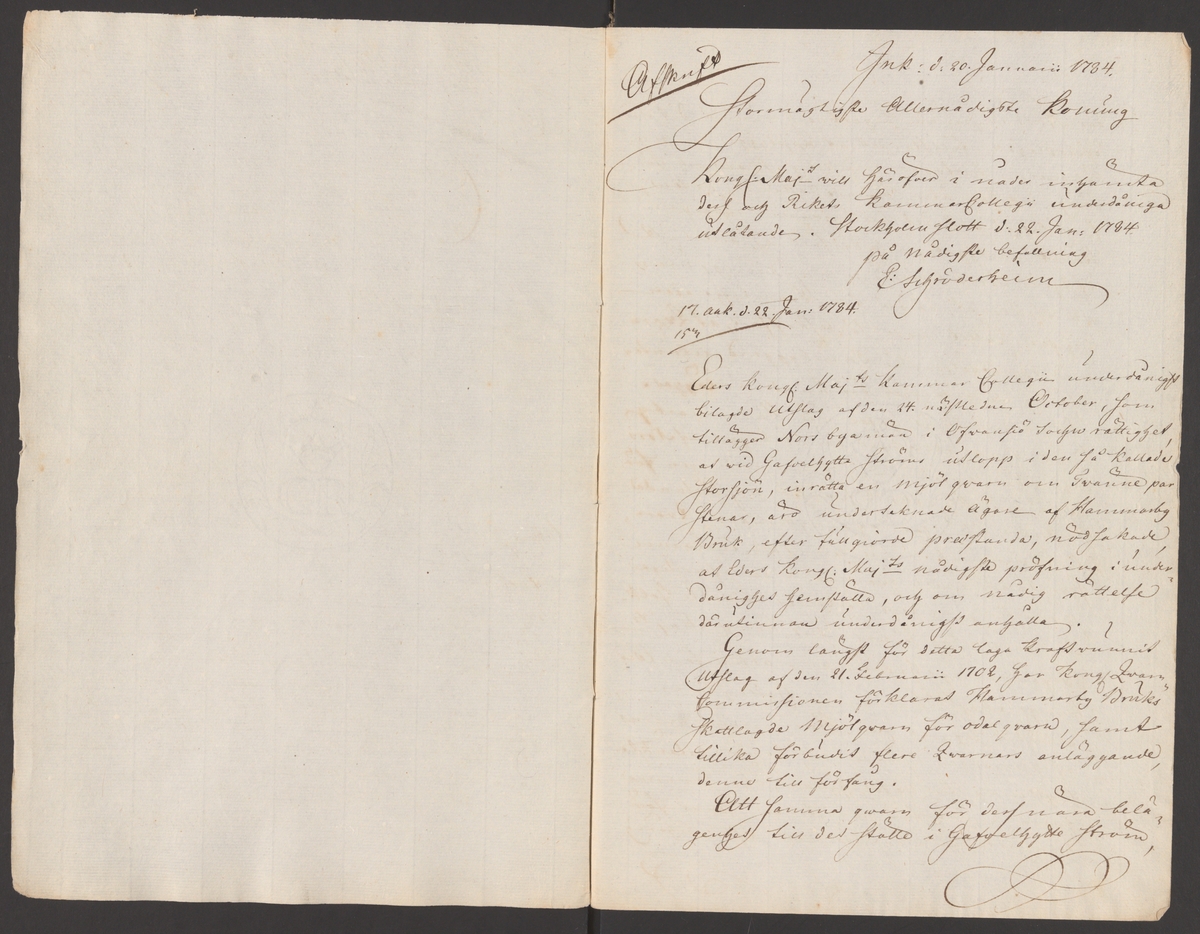 Afskrift
Ink: d. 20. Januarii 1784.
Stormägtigste Allernådigste Konung
Kongl. Maj:ts will häröfver i nåder inhämta
dess och Rikets Kammar Collegii underdåniga
utlåtande. Stockholms slott d. 22. Jan: 1784.
på nådigste befallning
E: Schröderheim
17. ank. d. 22. Jan: 1784.
Eders Kongl. Maj:ts Kammar Collegii underdånigst
bilagde Utslag af den 24. nästledne October, som
tillägger Norsbyamän i Ofvansjö Sochn rättighet,
at wid Gafvelhytte Ströms utlopp i den så kallade
Storsjön, inrätta en mjöl qwarn om Tvänne par
stenar, äro undertecknade Ägare af Hammarby
Bruk, efter fullgiorde præstanda, nödsakade,
at Eders Kongl. Maj:ts nådigste pröfning i under-
dånighet hemställa, och om nådig rättelse
därutinnan underdånigst anhålla.
Genom längst för detta laga kraft wunnit
Utslag af den 21. Februarii 1702, har Kongl. Qwarn
Commissionen förklarat Hammarby Bruks
skattlagde Mjölqwarn för odalqwarn, samt
tillika förbudit flere Qwarnars anläggande,
denne till förfång.
Att samma qwarn för dess nära belä-
genhet till det ställe i Gafvelhytte Ström,